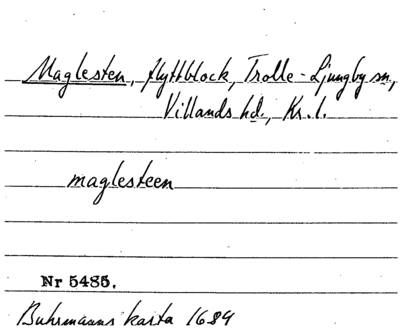 Maglesten, flyttblock, Trolle-Ljungby sn,
Villands hd., Kr. l.
maglesteen
Nr 5485.
Buhrmanns karta 1684